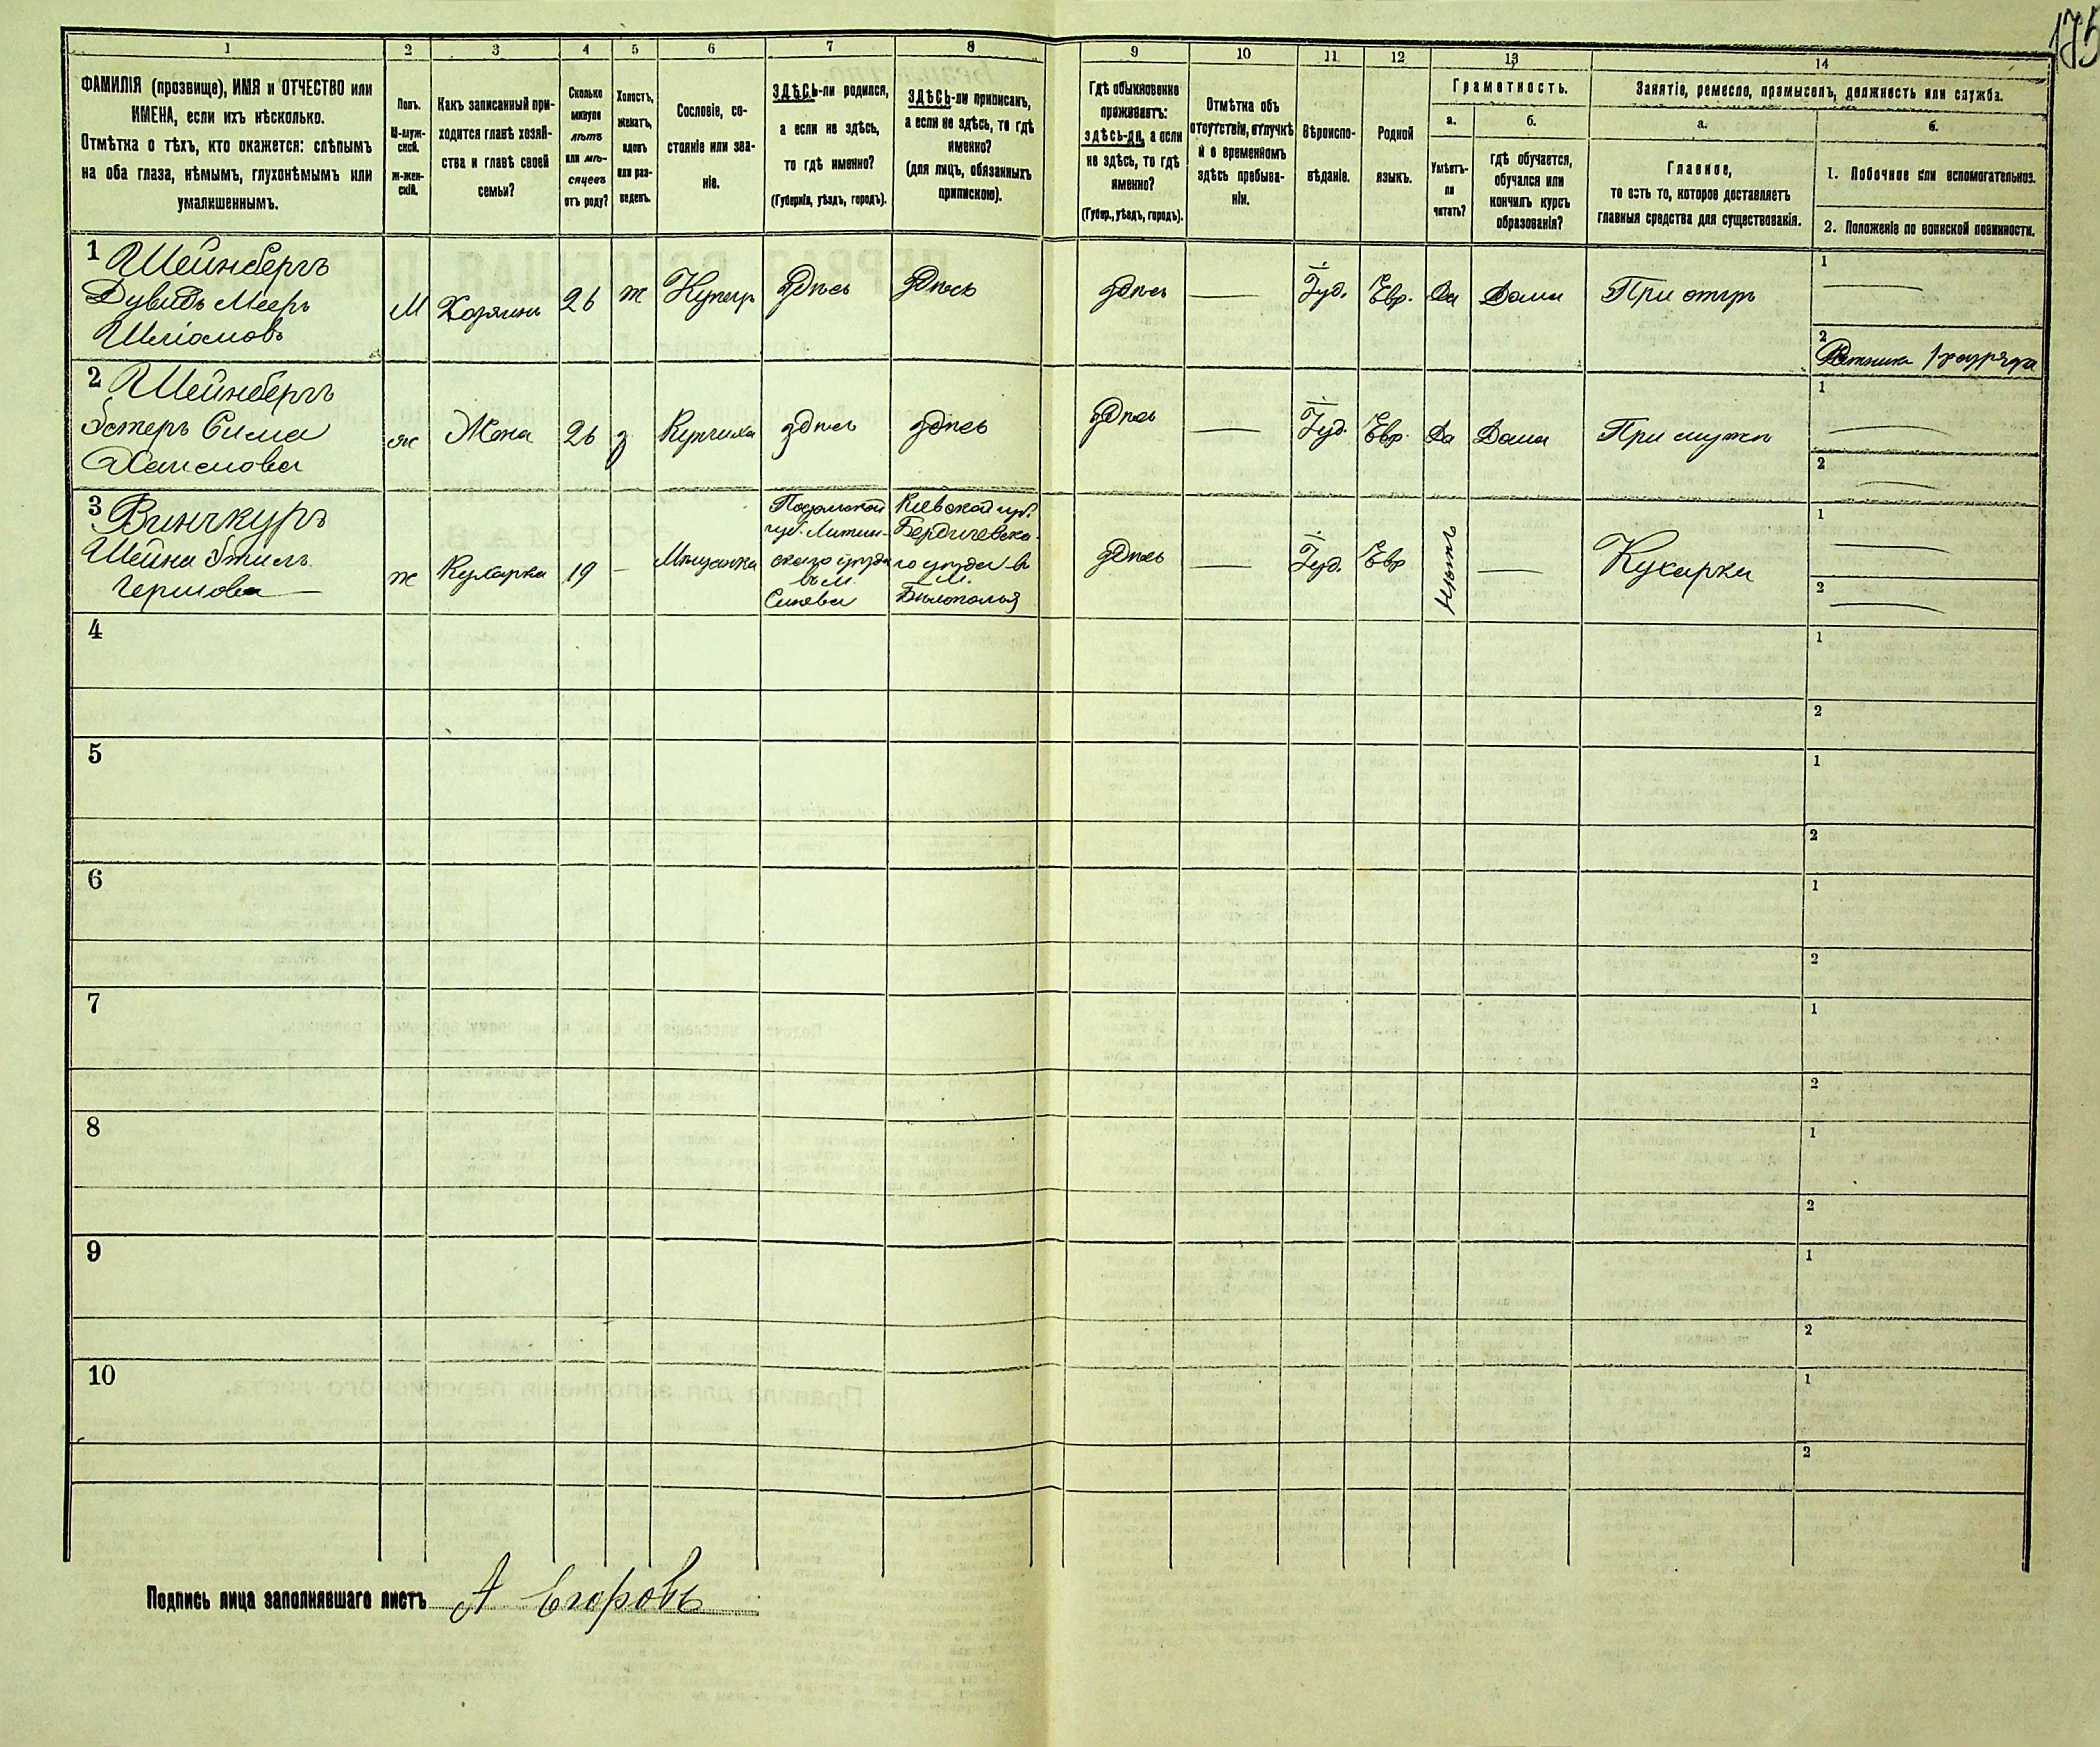 175
1 2 3 4 5 6 7 8 9 10 11 12 13 14
ФАМИЛІЯ (прозвище), ИМЯ и ОТЧЕСТВО или
ИМЕНА, если ихъ нѣсколько.
Отмѣтка о тѣхъ, кто окажется: слѣпымъ
на оба глаза, нѣмымъ, глухонѣмымъ или
умалишеннымъ.
Полъ.
М-муж-
ской.
Ж-жен-
скій.
Какъ записанный при-
ходится главѣ хозяй-
ства и главѣ своей
семьи?
Сколько
минуло
лѣтъ
или мѣ-
сяцевъ
отъ роду?
Холостъ,
женатъ,
вдовъ
или раз-
веденъ.
Сословіе, со-
стояніе или зва-
ніе.
ЗДѢСЬ-ли родился,
а если не здѣсь,
то гдѣ именно?
(Губернія, уѣздъ, городъ).
ЗДѢСЬ-ли приписанъ,
а если не здѣсь, то гдѣ
именно?
(для лицъ, обязанныхъ
припискою).
Гдѣ обыкновенно
проживаетъ:
здѣсь-ли, а если
не здѣсь, то гдѣ
именно?
(Губер., уѣздъ, городъ).
Отмѣтка объ
отсутствіи, отлучкѣ
и о временномъ
здѣсь пребыва-
ніи.
Вѣроиспо-
вѣданіе.
Родной
языкъ.
Грамотность.
а.
Умѣетъ-
ли
читать?
б.
гдѣ обучается,
обучался или
кончилъ курсъ
образованія?
Занятіе, ремесло, промыселъ, должность или служба.
а.
Главное,
то есть то, которое доставляетъ
главныя средства для существованія.
б.
1. Побочное или вспомогательное.
2. Положеніе по воинской повинности.
1 Шейнбергъ
Дувидъ Мееръ
Шліомовъ
М Хозяинъ 26 ж Купецъ здѣсь здѣсь здѣсь — Іуд. Евр. Да Дома При отцѣ
1 —
2 Ратникъ 1 разряда
2 Шейнбергъ
Эстеръ Сима
Хаимова
ж Жена 26 з Купчиха здѣсь здѣсь здѣсь — Іуд. Евр. Да Дома При мужѣ
1 —
2 —
3 Винокуръ
Шейна Этиль
Гершова
ж Кухарка 19 — Мѣщанка
Подольской
губ. Литин-
скаго уѣзда
въ м.
Кіевской губ.
Бердичевска-
го уѣзда въ
м.
Бѣлополья
здѣсь — Іуд. Евр нѣтъ — Кухарка
1 —
2 —
4 1
2
5 1
2
6 1
2
7 1
2
8 1
2
9 1
2
10 1
2
Подпись лица заполнявшаго листъ А Егоровъ